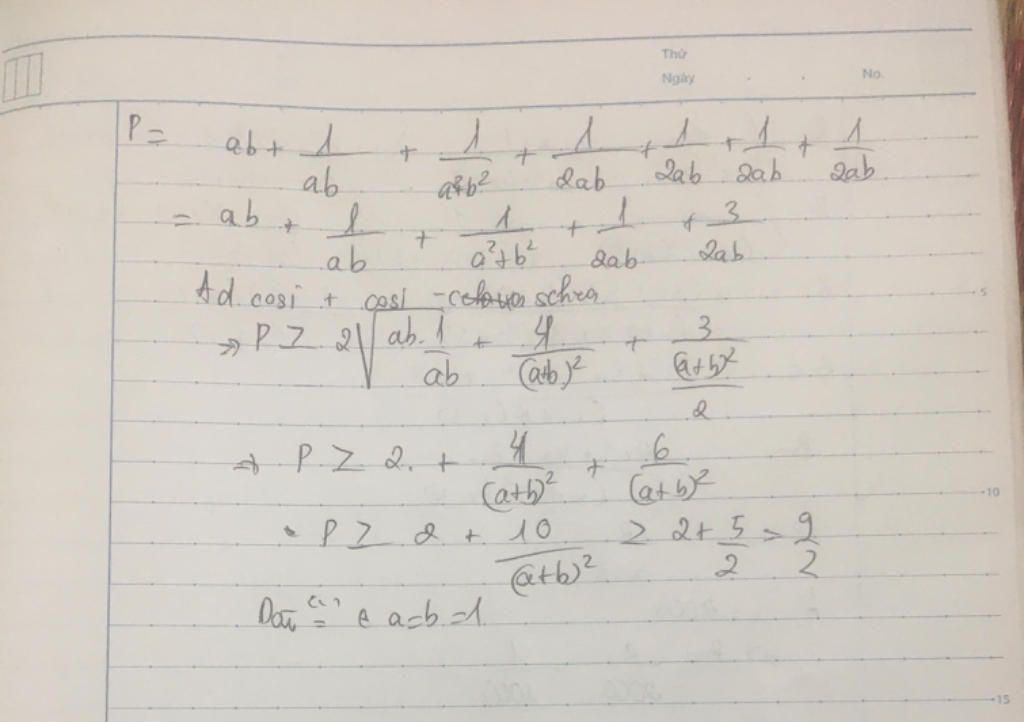 Thứ
Ngày . . No.
P = ab + 1/ab + 1/(a²+b²) + 1/2ab + 1/2ab + 1/2ab + 1/2ab
= ab + 1/ab + 1/(a²+b²) + 1/2ab + 3/2ab
Ad cosi + cosi - schwa
5
=> P ≥ 2√(ab·1/ab) + 4/(a+b)² + 3/((a+b)²/2)
=> P ≥ 2. + 4/(a+b)² + 6/(a+b)²
10
P ≥ 2 + 10/(a+b)² ≥ 2 + 5/2 > 9/2
Dấu "=" a=b=1
15